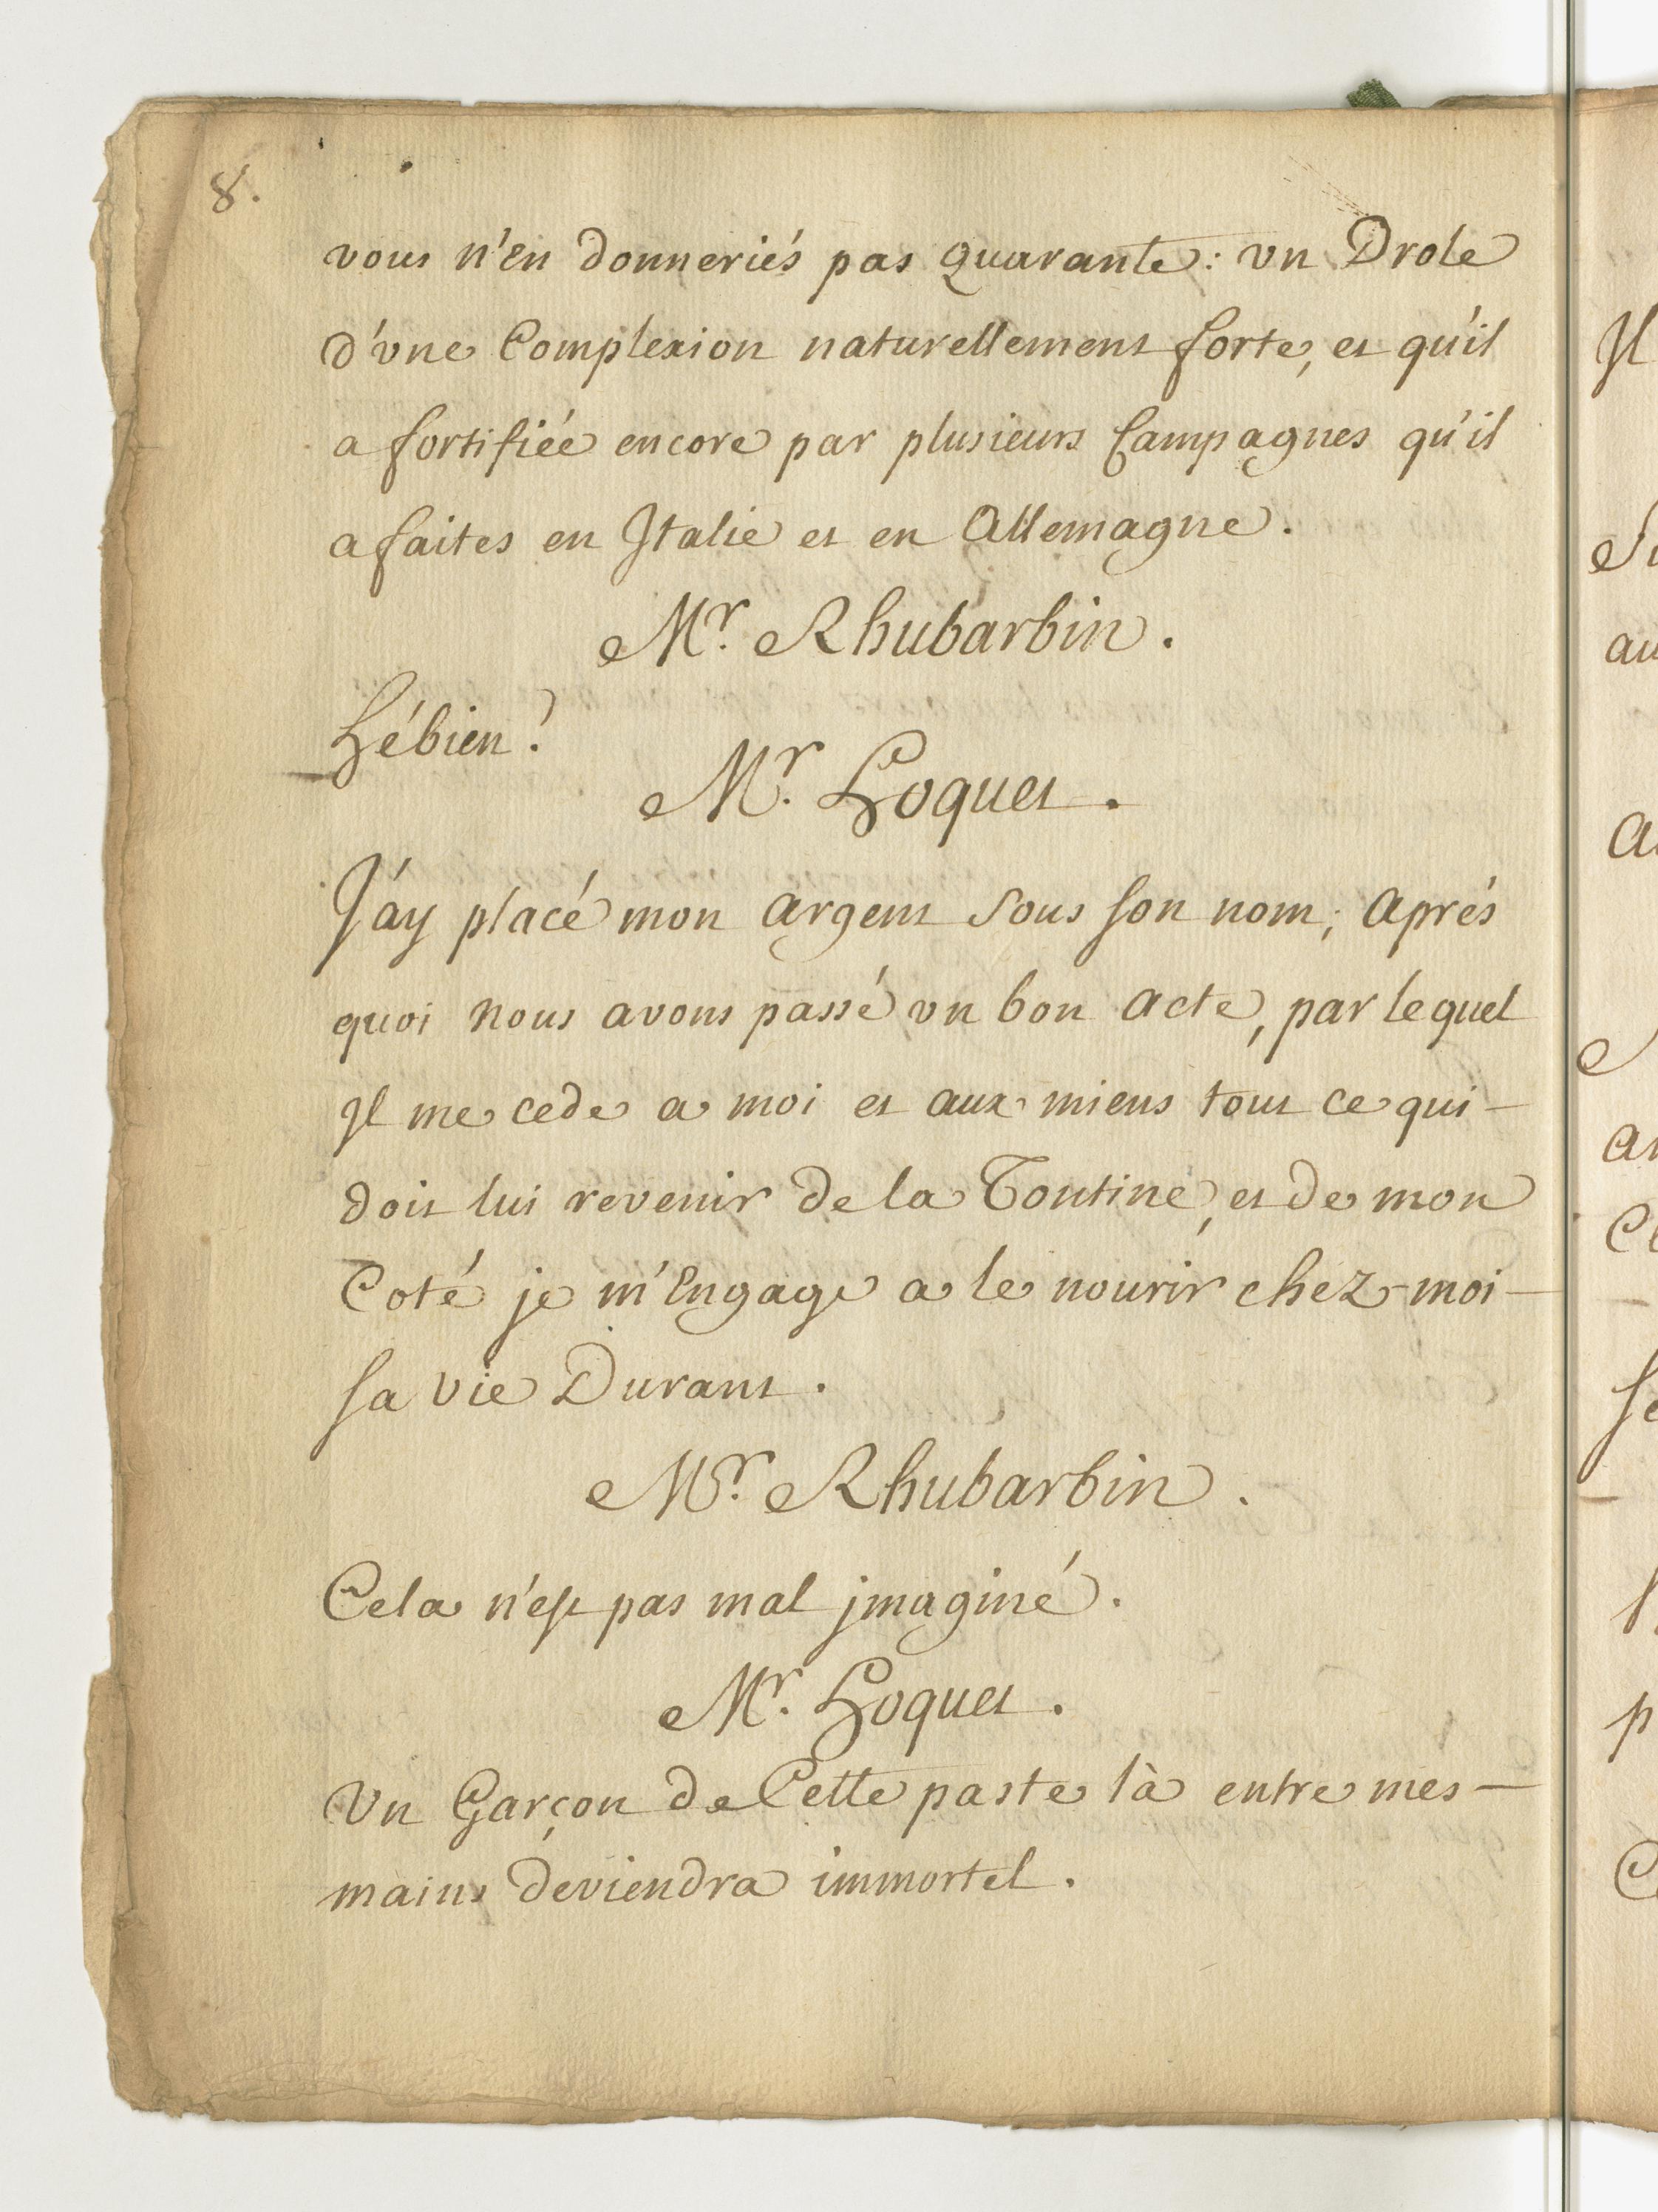 8.
vous n'en donneriés pas quarante: vn Drole
d'vne Complexion naturellement forte, et qu'il
a fortifiée encore par plusieurs Campagnes qu'il
a faites en Italie et en Allemagne.
Mr. Rhubarbin.
Hébien!
Mr. Hoquet.
J'ay placé mon argent sous son nom; après
quoi nous avons passé vn bon acte, par lequel
Il me cede a moi et aux miens tout ce qui-
doit lui revenir de la Tontine, et de mon
Coté je m'Engage a le nourir chez-moi-
sa vie Durant.
Mr. Rhubarbin.
Cela n'est pas mal jmaginé.
Mr. Hoquet.
Vn Garçon de Cette paste là entre mes-
mains deviendra immortel.